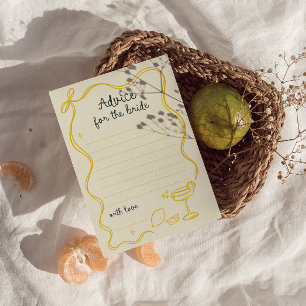 Advice
for the bride
with love